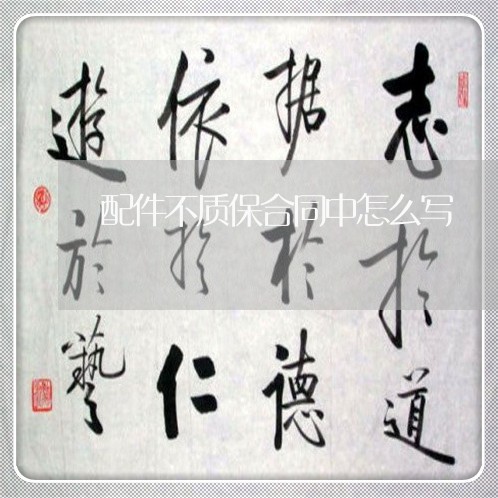 志於道
据於德
依於仁
遊於藝
配件不质保合同中怎么写